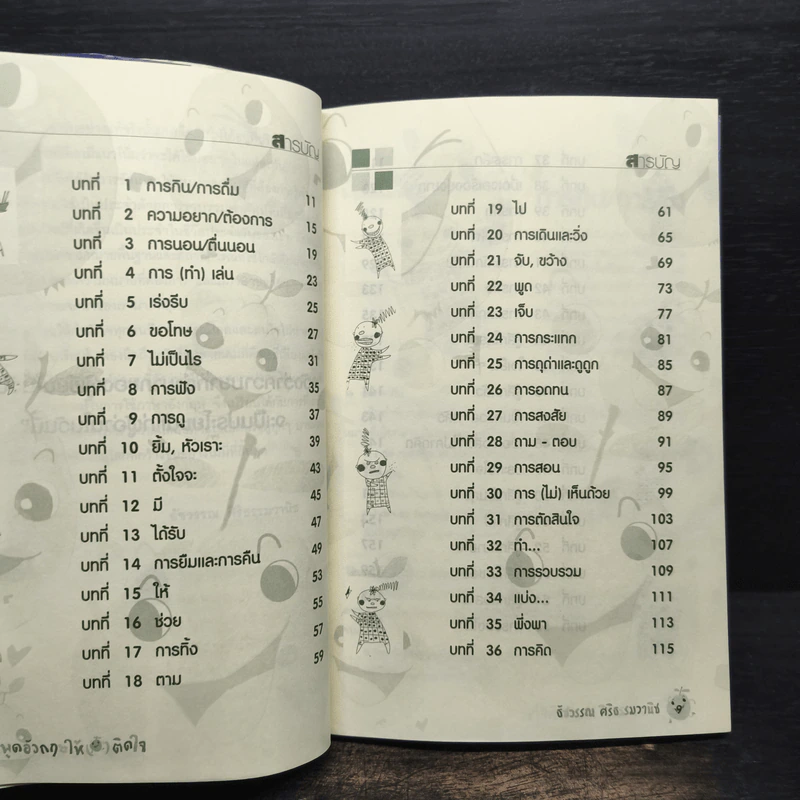 สารบัญ
บทที่ 1 การกิน/การดื่ม 11
บทที่ 2 ความอยาก/ต้องการ 15
บทที่ 3 การนอน/ตื่นนอน 19
บทที่ 4 การ (ทำ) เล่น 23
บทที่ 5 เร่งรีบ 25
บทที่ 6 ขอโทษ 27
บทที่ 7 ไม่เป็นไร 31
บทที่ 8 การฟัง 35
บทที่ 9 การดู 37
บทที่ 10 ยิ้ม, หัวเราะ 39
บทที่ 11 ตั้งใจจะ 43
บทที่ 12 มี 45
บทที่ 13 ได้รับ 47
บทที่ 14 การยืมและการคืน 49
บทที่ 15 ให้ 53
บทที่ 16 ช่วย 55
บทที่ 17 การทิ้ง 57
บทที่ 18 ตาม 59
ให้ ติดใจ
สารบัญ
บทที่ 19 ไป 61
บทที่ 20 การเดินและวิ่ง 65
บทที่ 21 จับ, ขว้าง 69
บทที่ 22 พูด 73
บทที่ 23 เจ็บ 77
บทที่ 24 การกระแทก 81
บทที่ 25 การดุด่าและดูถูก 85
บทที่ 26 การอดทน 87
บทที่ 27 การสงสัย 89
บทที่ 28 ถาม - ตอบ 91
บทที่ 29 การสอน 95
บทที่ 30 การ (ไม่) เห็นด้วย 99
บทที่ 31 การตัดสินใจ 103
บทที่ 32 ทำ... 107
บทที่ 33 การรวบรวม 109
บทที่ 34 แบ่ง... 111
บทที่ 35 พึ่งพา 113
บทที่ 36 การคิด 115
9